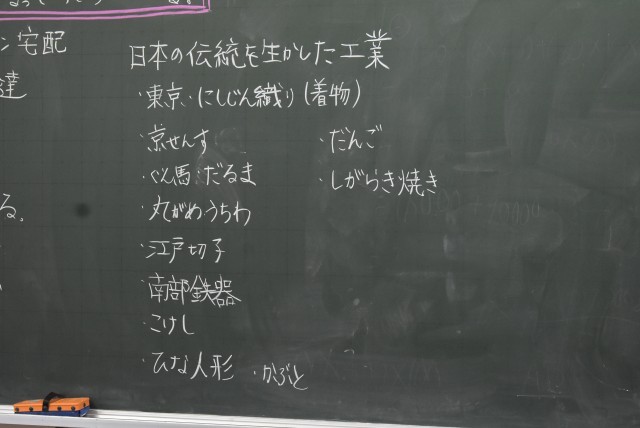 ン宅配
達
る。
日本の伝統を生かした工業
・東京・にしじん織り(着物)
京せんす
ぐん馬:だるま
・丸がめうちわ
・江戸切子
・南部鉄器
・こけし
・ひな人形 ・かぶと
・だんご
・しがらき焼き